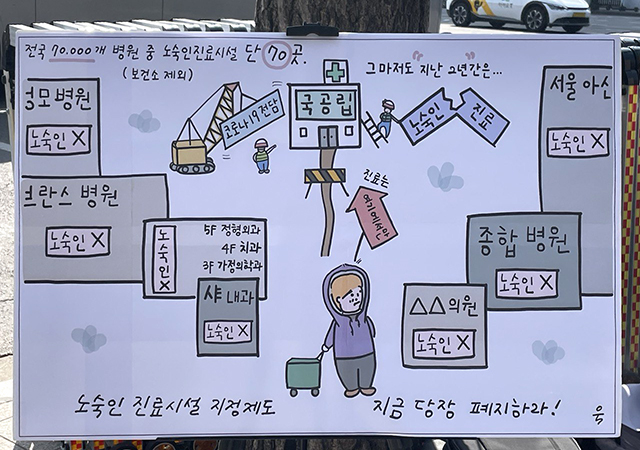 전국 70.000개 병원 중 노숙인진료시설 단 70곳.
(보건소 제외)
그마저도 지난 2년간은...
성모병원
노숙인 X
브란스 병원
노숙인 X
노숙인 X
5F 정형외과
4F 치과
3F 가정의학과
샤 내과
노숙인 X
코로나19전담
국공립
노숙인 진료
진료는
여기에서만
서울 아산
노숙인 X
종합 병원
노숙인 X
△△의원
노숙인 X
노숙인 진료시설 지정제도 지금 당장 폐지하라!
윽